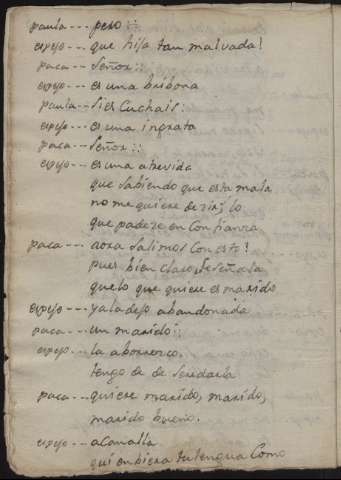 paula --- pero::
espejo --- que hija tan malvada!
paca --- Señor::
espejo --- es una bribona
paula --- si es Cuchais:
espejo --- es una ingrata
paca --- Señor::
espejo --- es una atrevida
que sabiendo que esta mala
no me quiere dezir, lo
que padeze en Confianza
paca --- aora salimos con esto!
pues bien claro, Se señala
que lo que quiere es marido
espejo --- ya la dejo abandonada
paca --- un marido::
espejo --- la aborrezco.
tengo de de seredarla
paca --- quiere marido, marido,
marido bueno.
espejo --- a Canalla.
qui en biera tu lengua Como